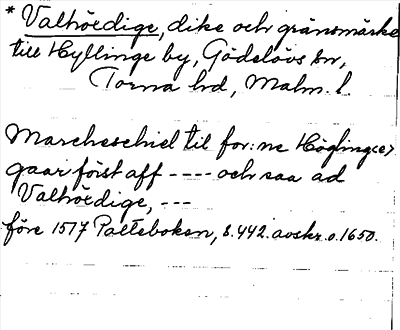 * Valhöedige, dike och gränsmärke
till Hyllinge by, Gödelövs sn,
Torna hd, Malm. l.
Marcheschiel til for:ne Högling<e>
gaar först aff ---- och saa ad
Valhöedige, ---
före 1517 Palteboken, s. 442. avskr. o. 1650.